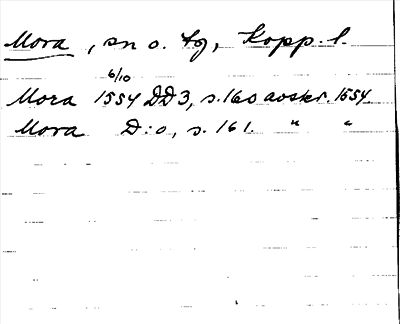 Mora, sn o. tg, Kopp. l.
6/10
Mora 1554 DD3, s. 160 avskr. 1554
Mora D:o, s. 161. " "